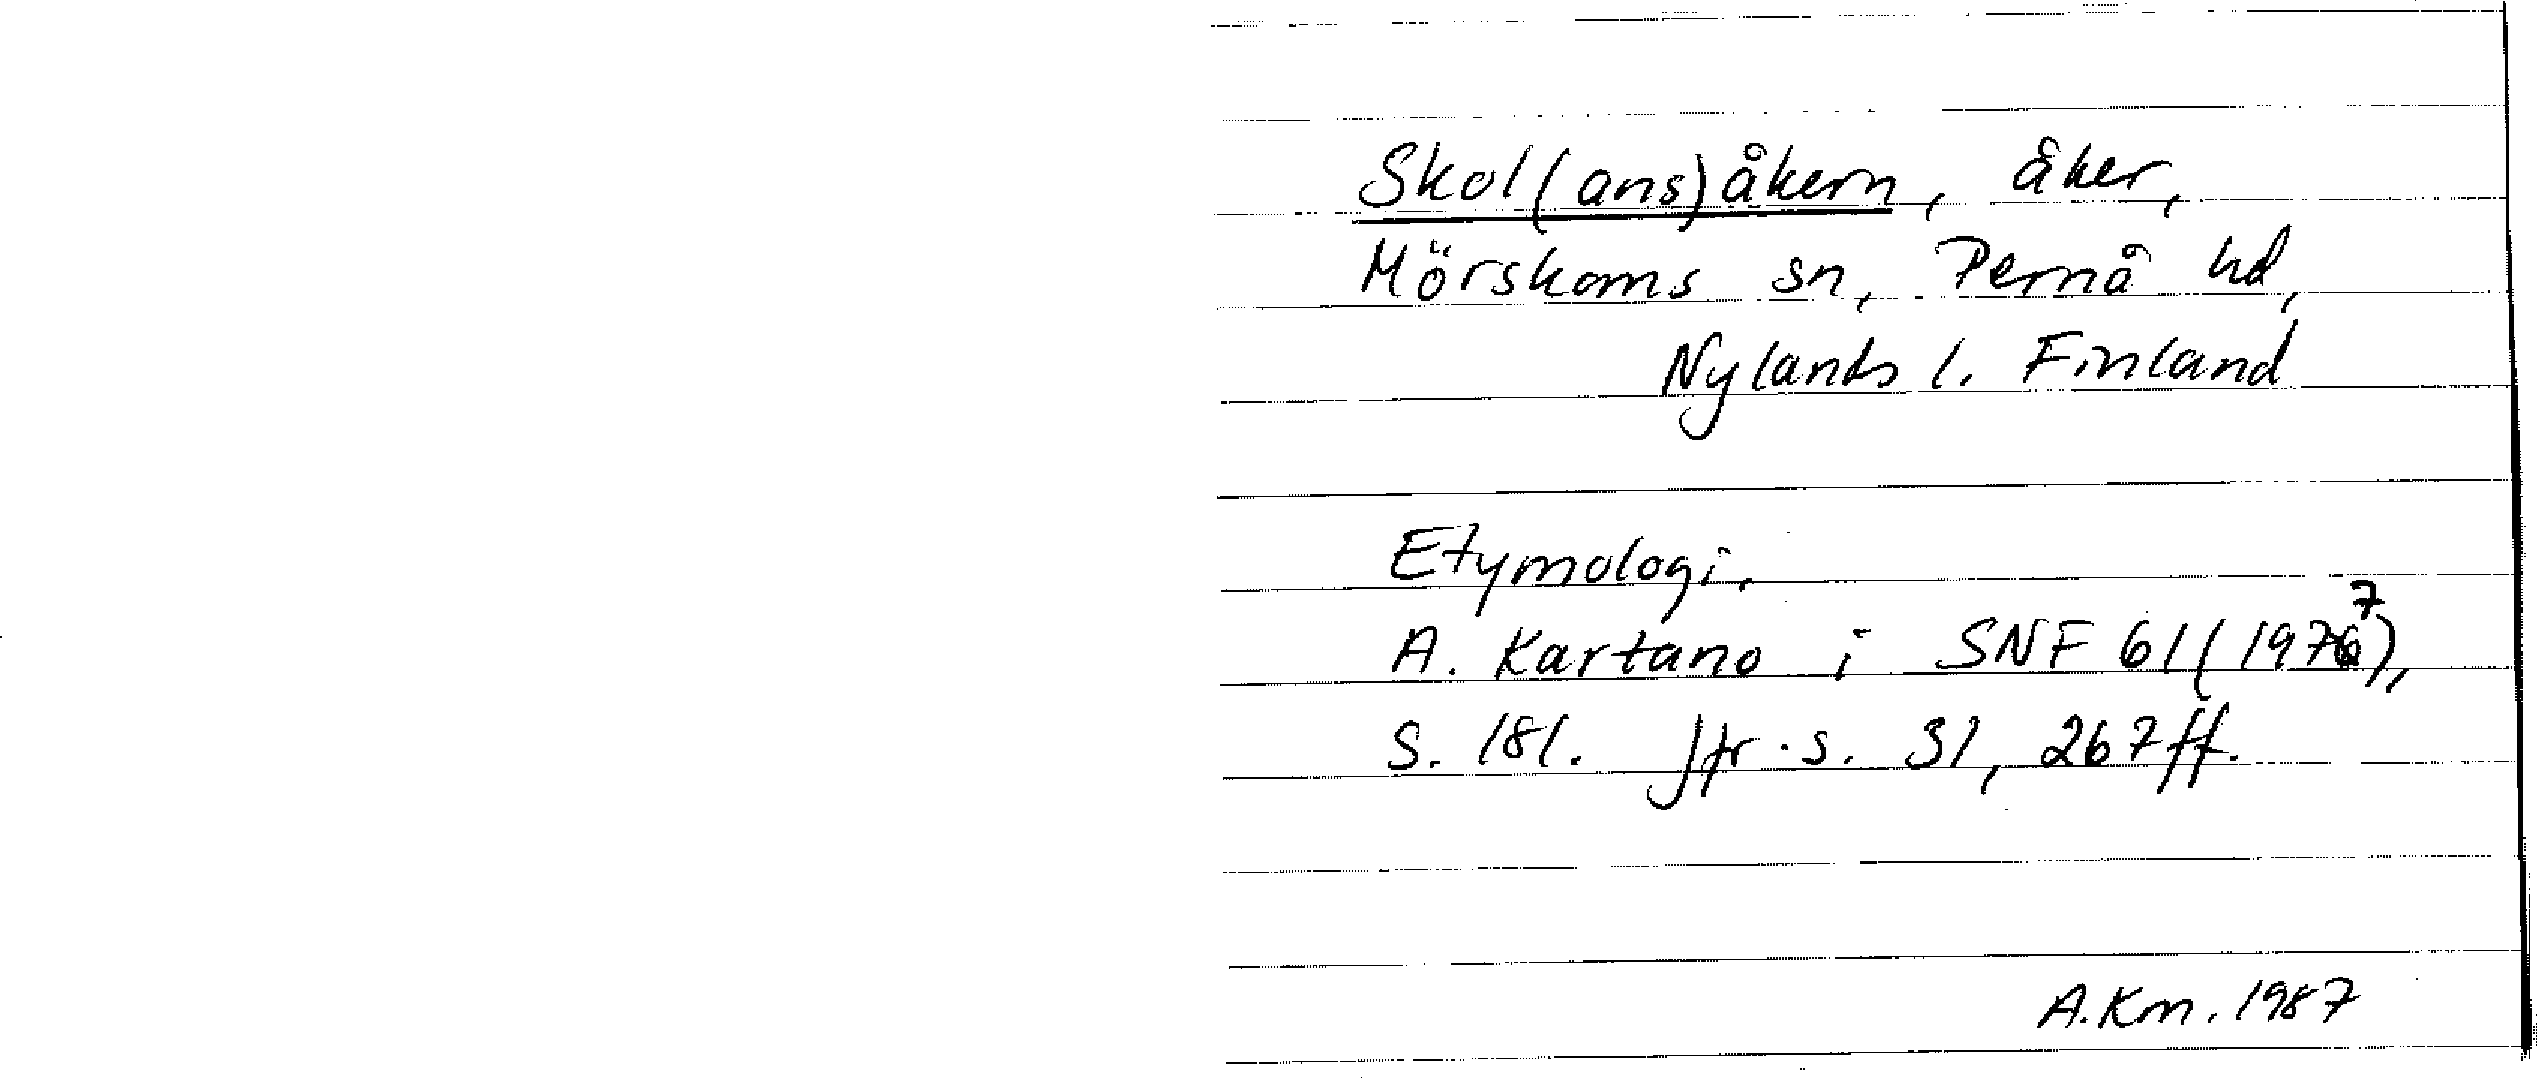 Skol(ans)åkern, åker,
Mörskoms sn, Pernå hd,
Nylands l. Finland
Etymologi.
A. Kartano i SNF 61 (1977),
S. 181. Jfr. s. 31, 267 ff.
A.Km. 1987